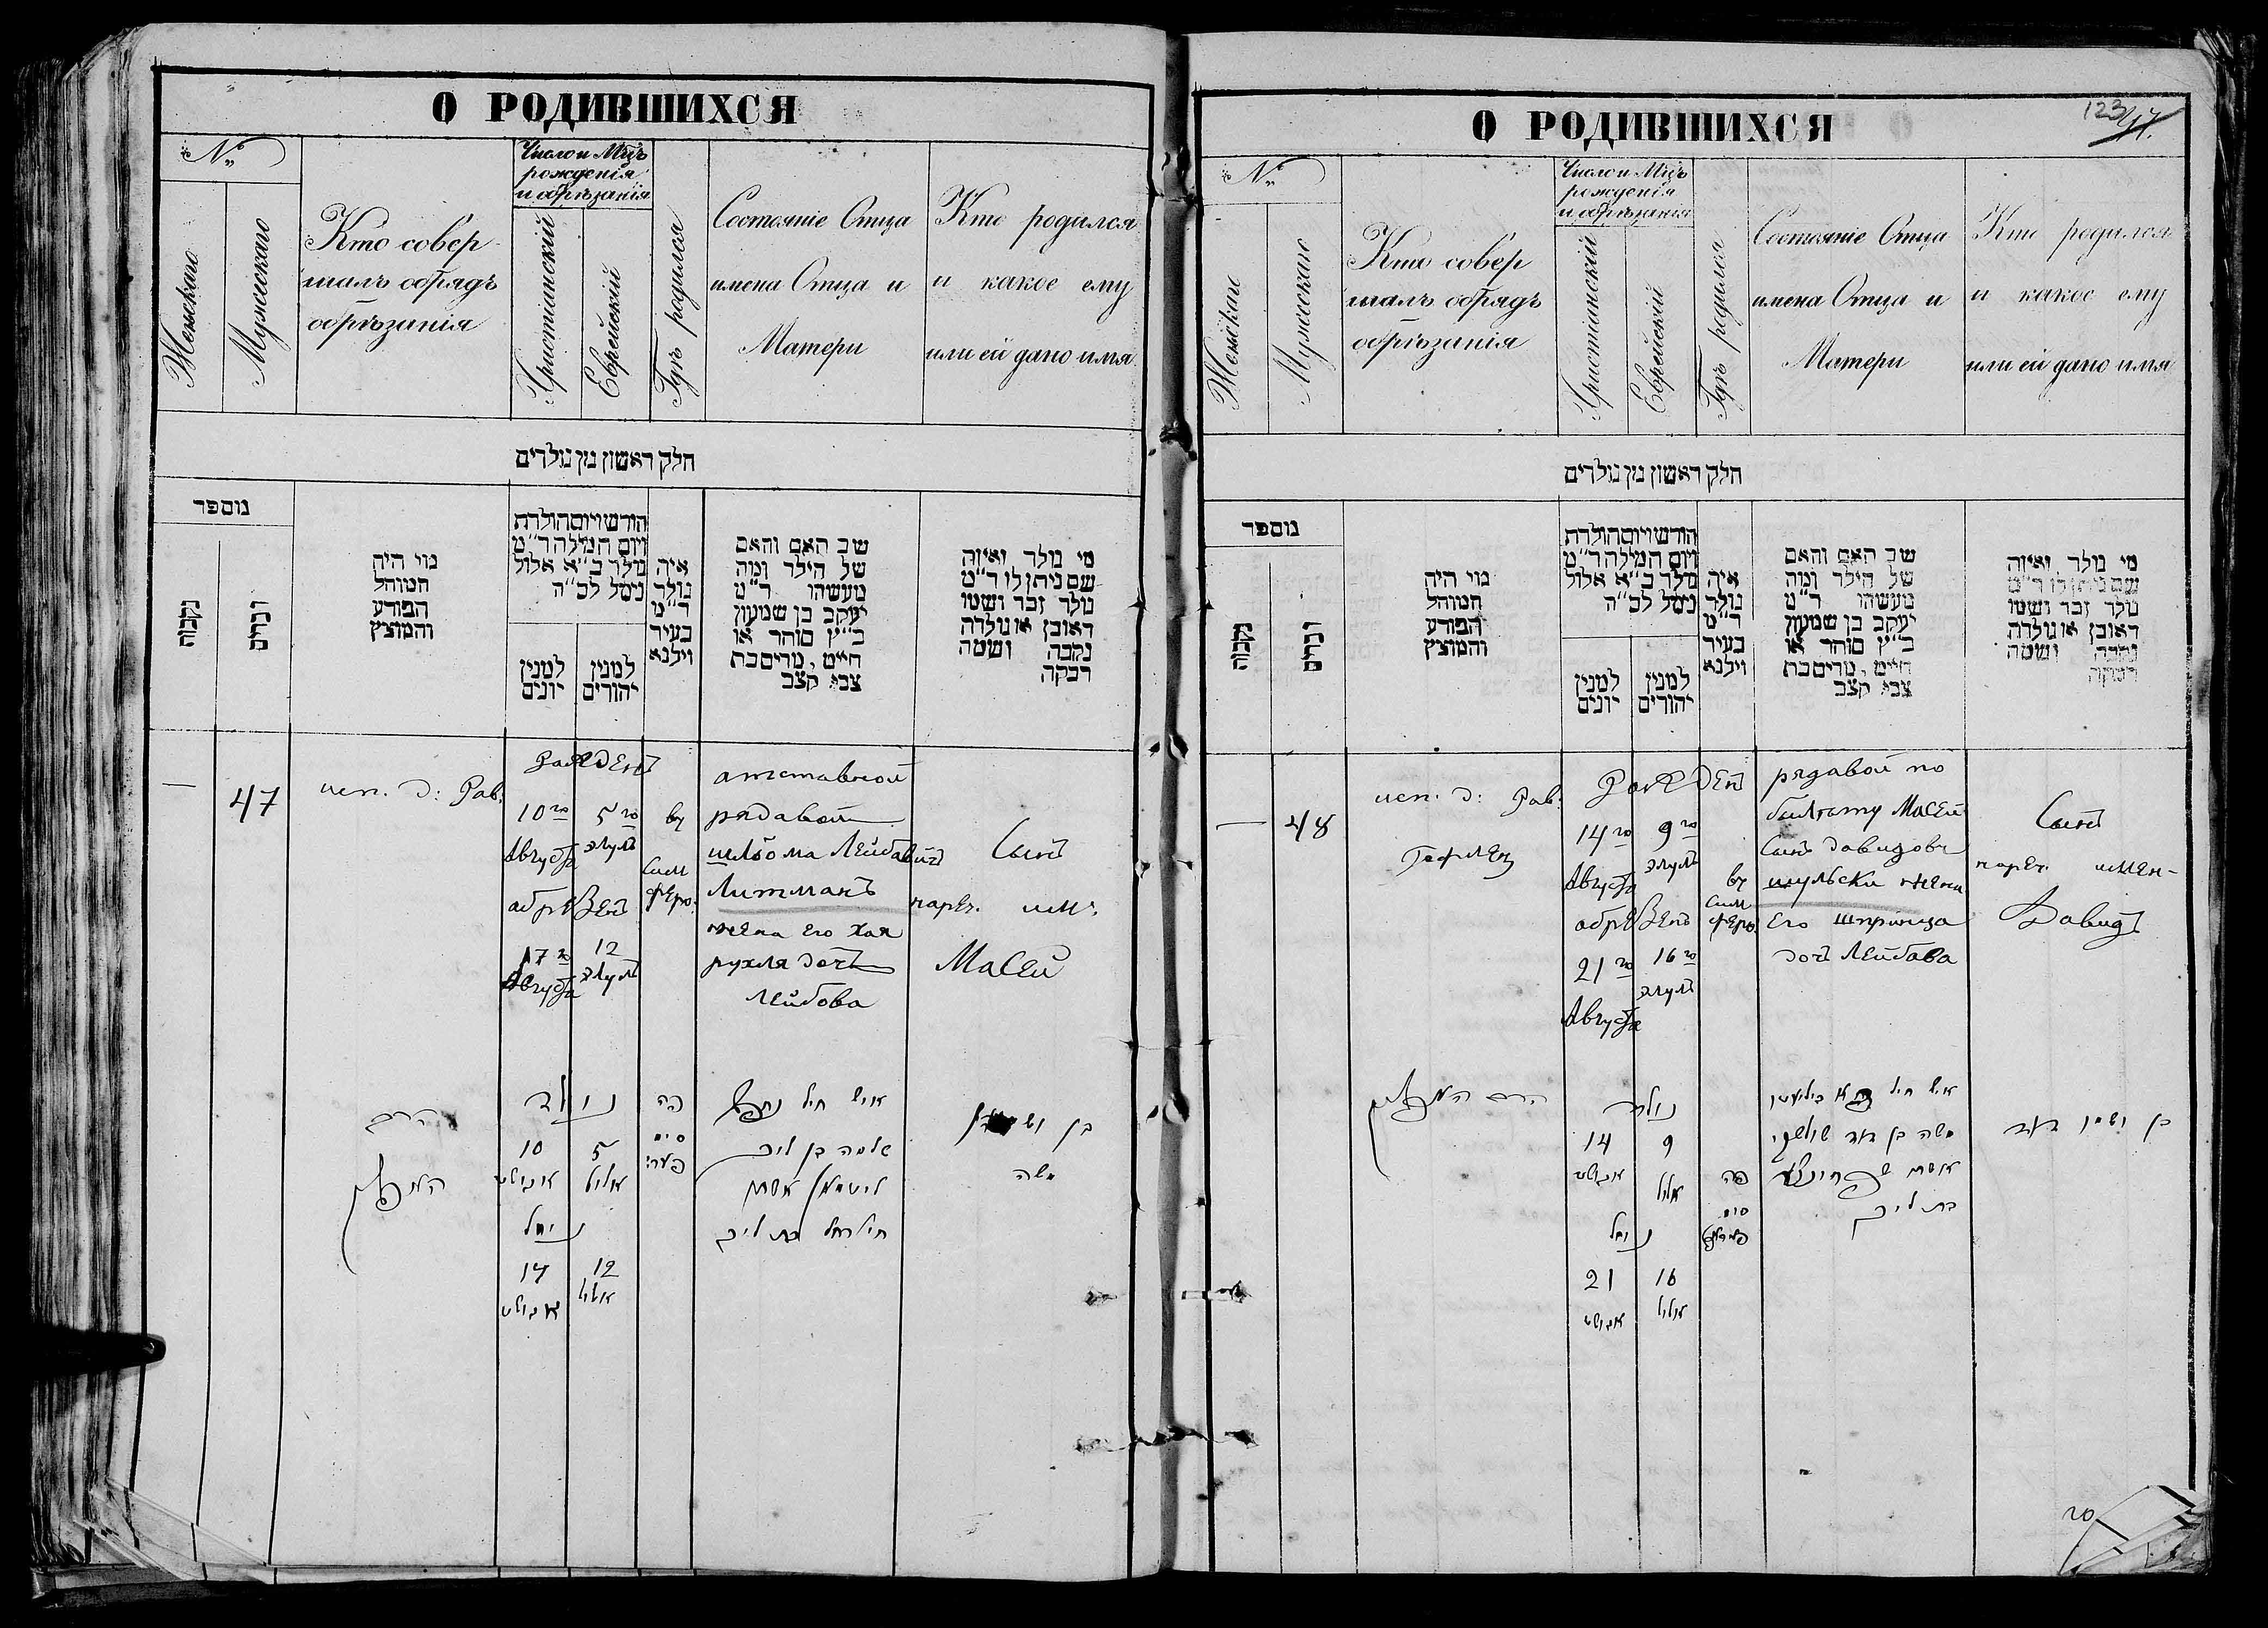 О РОДИВШИХСЯ
№
Женскаго
Мужескаго
Кто совер
шалъ обрядъ
обрѣзанія
Число и Мѣць
рожденія
и обрѣзанія
Христіанскій
Еврейскій
Гдѣ родился
Состояніе Отца
имена Отца и
Матери
Кто родился
и какое ему
или ей дано имя
חלק ראשון מן נולדים
מספר
נקבות
זכרים
מי היה
המוהל
הפורע
והמוצץ
חודש ויום הולדת
ויום המילה ר״מ
נולד כ״א אלול
נימל לכ״ה
למנין
יונים
למנין
יהודים
איה
נולד
ר״מ
בעיר
וילנא
שב האם והאם
של הילד ומה
מעשהו ר״מ
יעקב בן שמעון
כ״ץ סוחר או
חייט, מרים בת
צבי קצב
מי נולד ואיזה
שם ניתן לו ר״מ
נולד זכר ושמו
ראובן או נולדה
נקבה ושמה
רבקה
—
47
исп. д: Рав.
рожденъ
10го
Августа
5го
элулъ
обрѣзенъ
17го
Августа
12
элулъ
въ
Сим
ферo.
атставной
рядавой
шльома Лейбавичъ
Литманъ
жена его хая
рухля дочъ
Лейбова
Сынъ
нареч. им.
Масей
נולד
10
אויגוסט
5
אלול
נימל
17
אויגוסט
12
אלול
פה
סים
פערי
שלמה בן ליב
ליטמאן אשתו
חי' רחל בת ליב
משה
О РОДИВШИХСЯ
123
№
Женскаго
Мужескаго
Кто совер
шалъ обрядъ
обрѣзанія
Число и Мѣць
рожденія
и обрѣзанія
Христіанскій
Еврейскій
Гдѣ родился
Состояніе Отца
имена Отца и
Матери
Кто родился
и какое ему
или ей дано имя
חלק ראשון מן נולדים
מספר
נקבות
זכרים
מי היה
המוהל
הפורע
והמוצץ
חודש ויום הולדת
ויום המילה ר״מ
נולד כ״א אלול
נימל לכ״ה
למנין
יונים
למנין
יהודים
איה
נולד
ר״מ
בעיר
וילנא
שב האם והאם
של הילד ומה
מעשהו ר״מ
יעקב בן שמעון
כ״ץ סוחר או
חייט, מרים בת
צבי קצב
מי נולד ואיזה
שם ניתן לו ר״מ
נולד זכר ושמו
ראובן או נולדה
נקבה ושמה
רבקה
—
48
исп. д: Рав.
Гофменъ
рожденъ
14го
Августа
9го
элулъ
обрѣзенъ
21го
Августа
16го
элулъ
въ
Сим
ферo.
рядавой по
билтату Масей
Сынъ давидовъ
шульски жена
Его шпринца
дочъ Лейбава
Сынъ
нареч. имен-
Давидъ
נולד
14
אויגוסט
9
אלול
נימל
21
אויגוסט
16
אלול
פה
סים
משה בן דוד שולסקי
אשתו שפרינצא
בת ליב
בן ושמו דוד
20